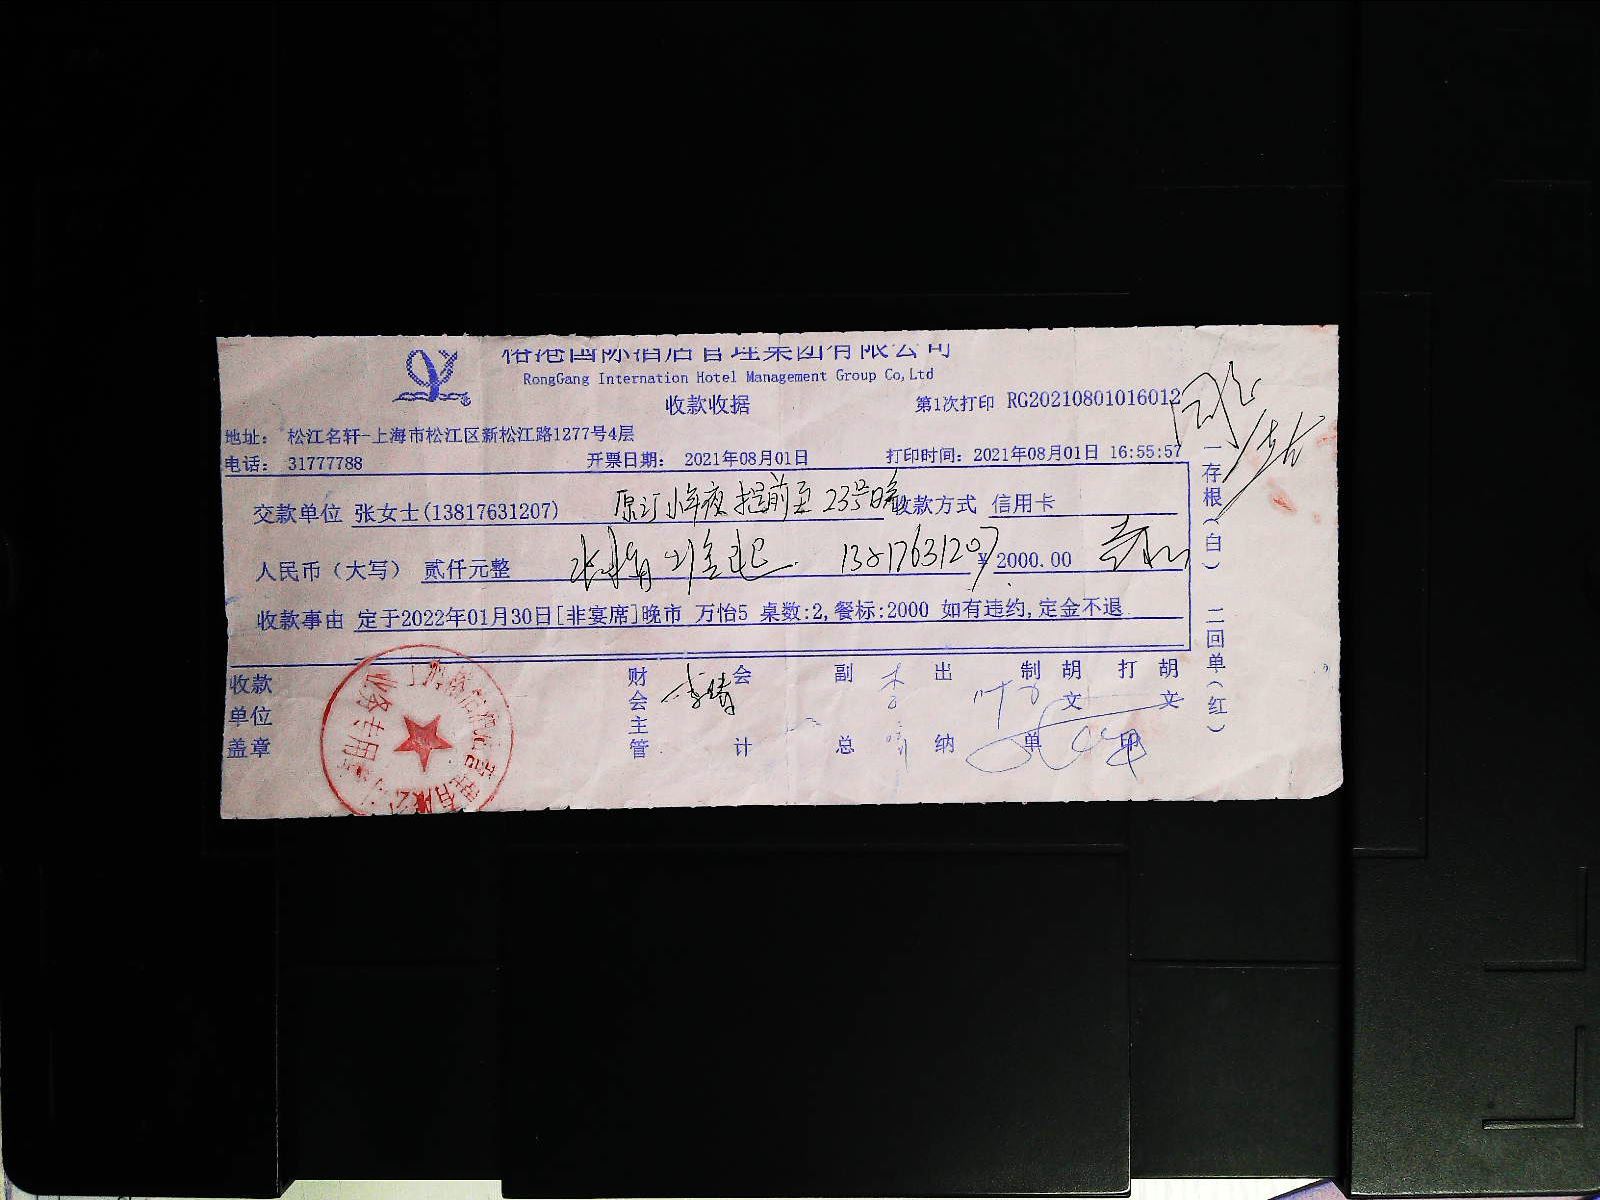 国际酒店管理集团有限公司
RongGang Internation Hotel Management Group Co,Ltd
收款收据
第1次打印 RG20210801016012
地址： 松江名轩-上海市松江区新松江路1277号4层
电话： 31777788 开票日期： 2021年08月01日 打印时间：2021年08月01日 16:55:57
交款单位 张女士(13817631207) 原订小年夜提前至23号晚 收款方式 信用卡
人民币（大写） 贰仟元整 13817631207 ¥ 2000.00
收款事由 定于2022年01月30日[非宴席]晚市 万怡5 桌数:2,餐标:2000 如有违约,定金不退
收款单位盖章 财会主管 会计 副总 出纳 制单 胡文 打印 胡文
一存根（白） 二回单（红）
业务专用章